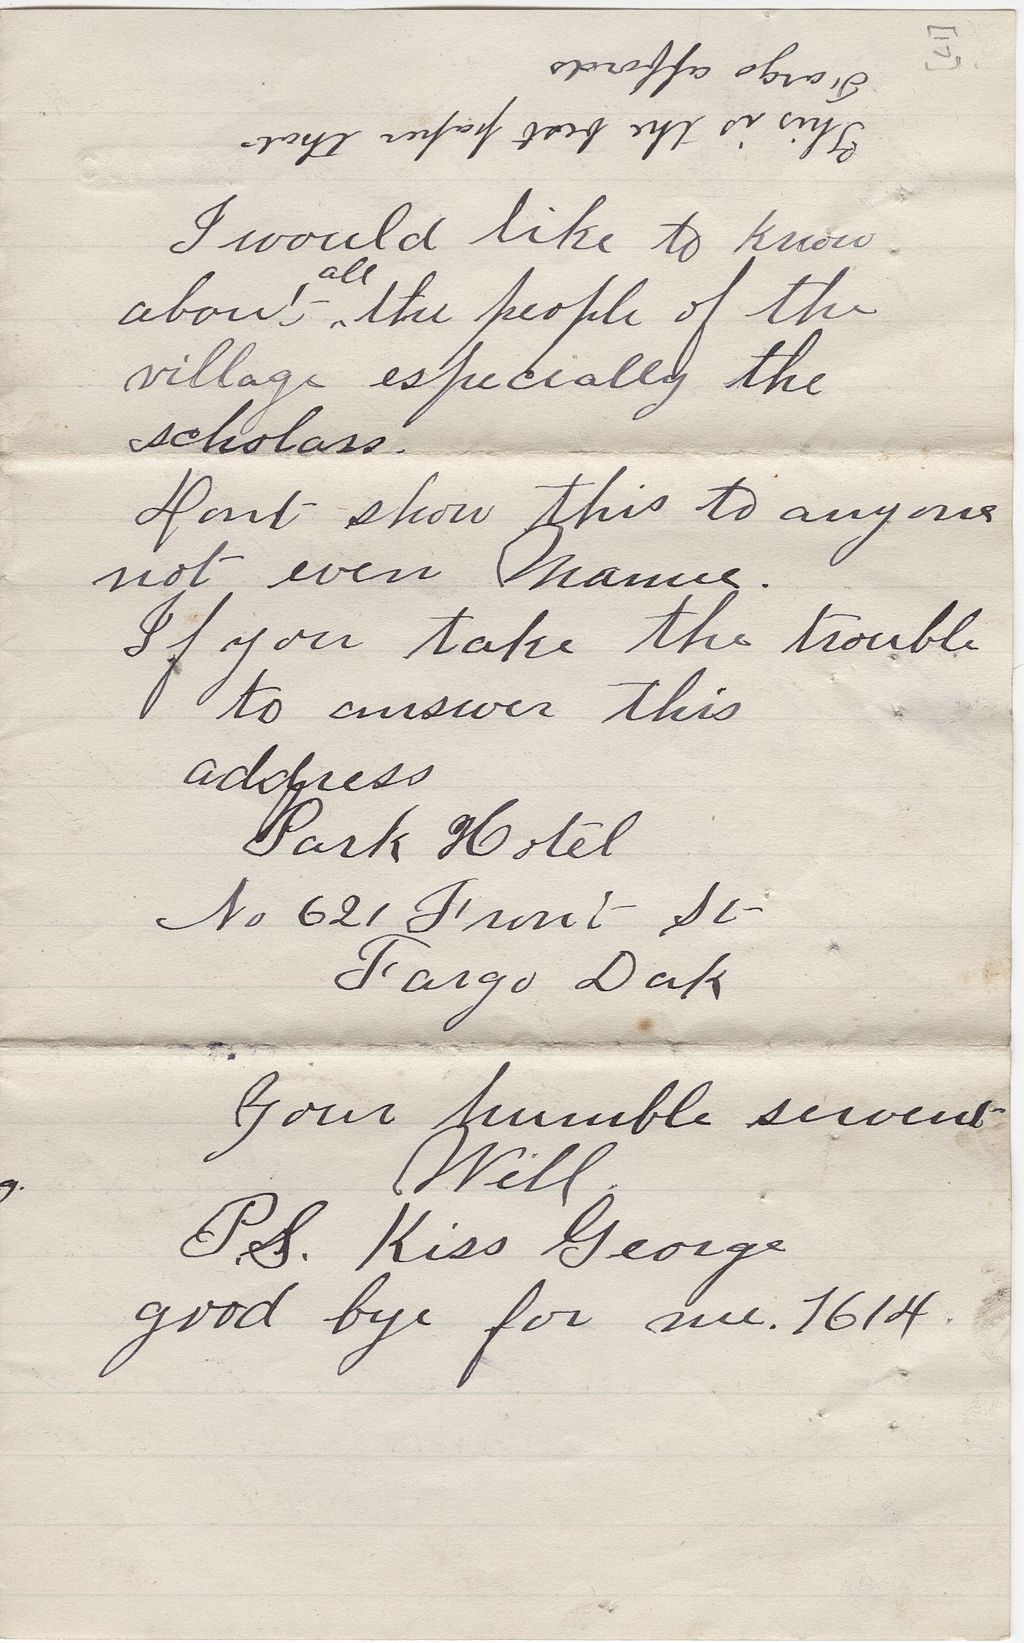 This is the best paper that
Fargo affords
I would like to know
about all the people of the
village especially the
scholars.
Dont show this to anyone
not even Mamie.
If you take the trouble
to answer this
address
Park Hotel
No 621 Front St
Fargo Dak
Your humble servent
Will.
P.S. Kiss George
good bye for me. 1614.